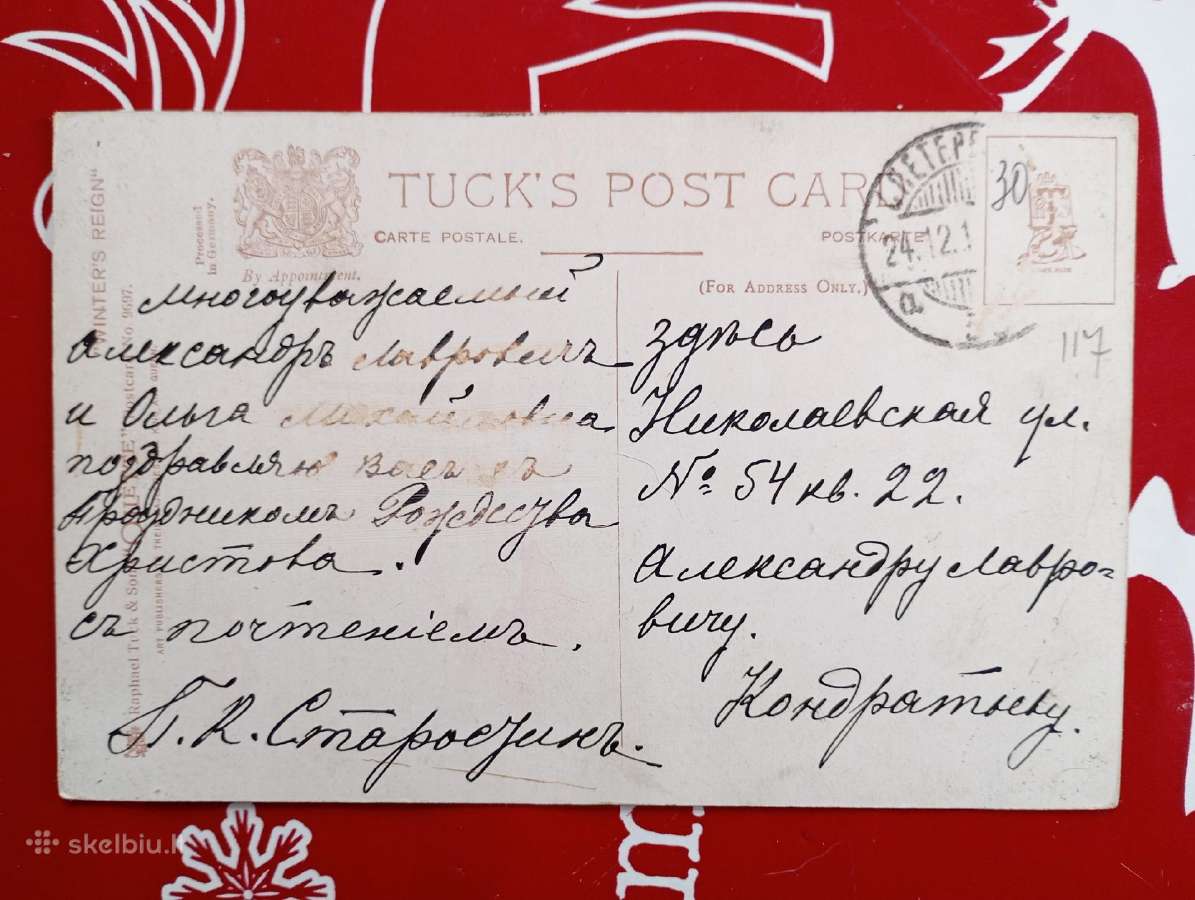 "WINTER'S REIGN"
Postcard No. 9697.
Raphael Tuck & Sons'
ART PUBLISHERS
Processed
in Germany.
By Appointment.
TUCK'S POST CARD
CARTE POSTALE.
POSTKARTE
(FOR ADDRESS ONLY.)
С.ПЕТЕРБ
24.12.1
а
30
117
многоуважаемый
Александръ Лавровичъ
и Ольга Михайловна
поздравляю Васъ съ
Праздникомъ Рождества
Христова.
съ почтеніемъ.
П. К. Старостинъ.
здѣсь
Николаевская ул.
№ 54 кв. 22.
Александру Лавро=
вичу.
Кондратьеву.
skelbiu.l